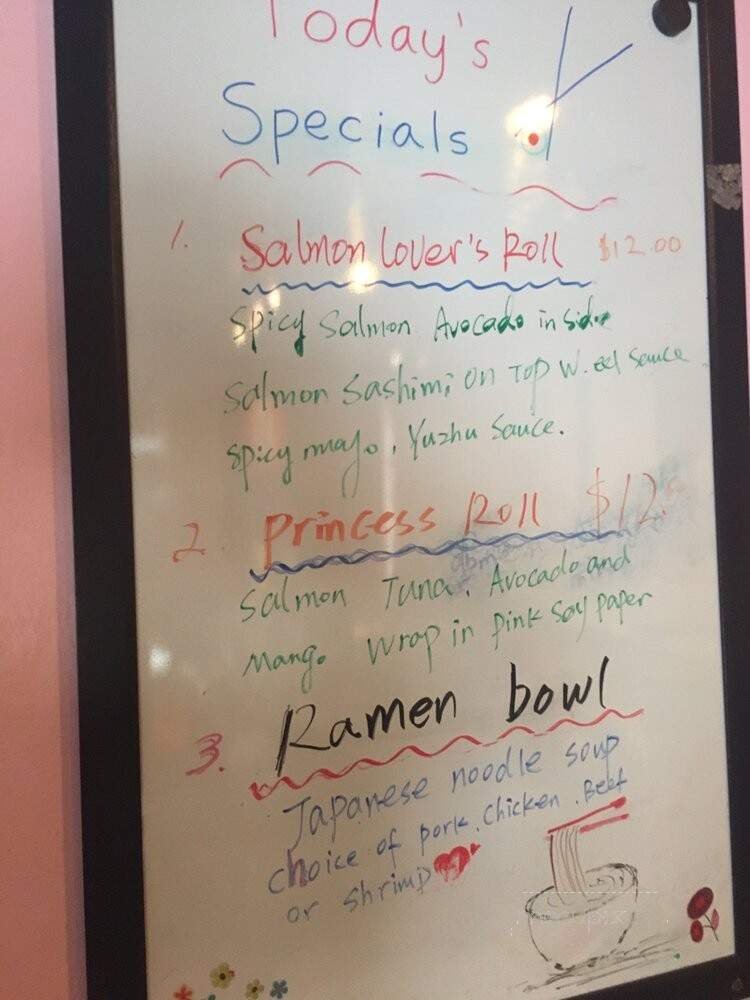 Today's
Specials
1. Salmon Lover's Roll $12.00
Spicy Salmon Avocado inside
Salmon Sashimi on Top W. eel Sauce
Spicy mayo, Yuzhu Sauce.
2. Princess Roll $12.
Salmon Tuna. Avocado and
Mango Wrap in pink Soy paper
3. Ramen bowl
Japanese noodle soup
choice of pork. Chicken. Beef
or shrimp